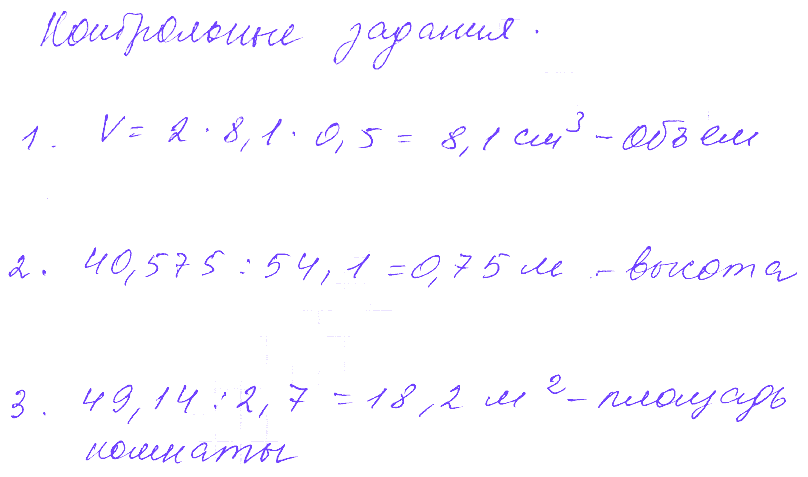 Контрольные задания.
1. V = 2 · 8,1 · 0,5 = 8,1 см³ – объем
2. 40,575 : 54,1 = 0,75 м – высота
3. 49,14 : 2,7 = 18,2 м² – площадь
комнаты